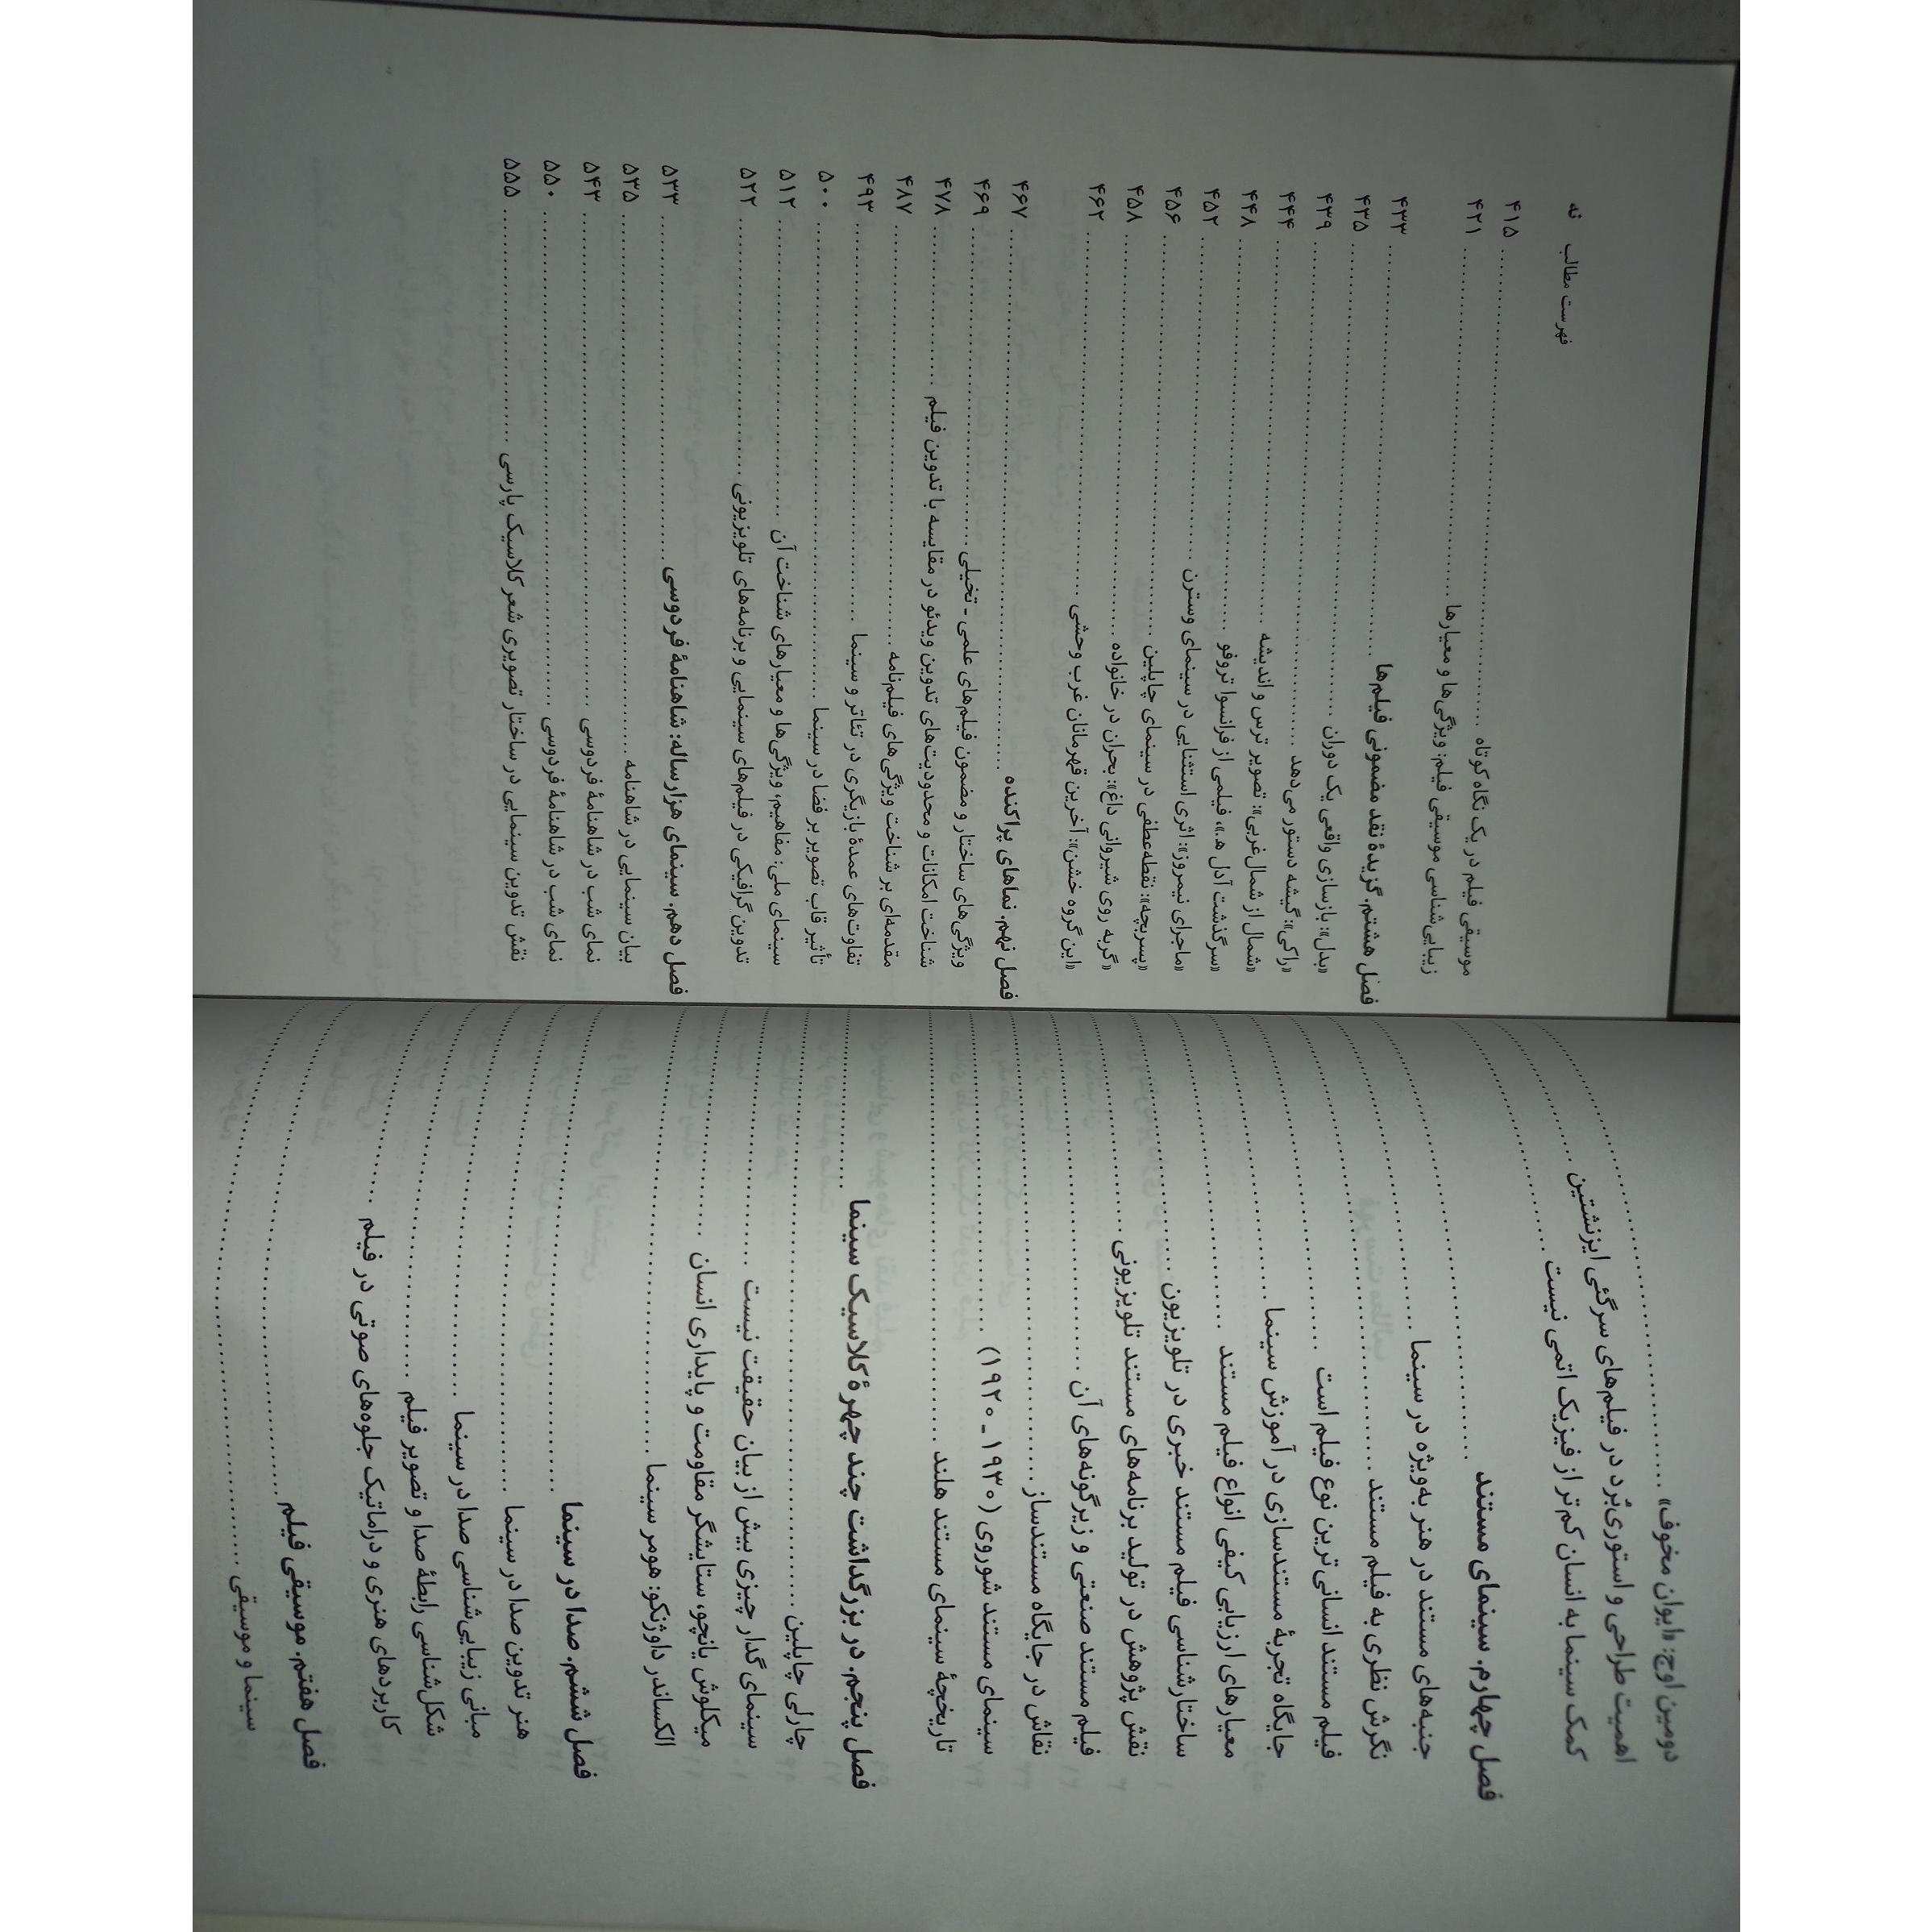 دومین اوج: «ایوان مخوف»
اهمیت طراحی و استوری‌بُرد در فیلم‌های سرگئی ایزنشتین
کمک سینما به انسان کم‌تر از فیزیک اتمی نیست
فصل چهارم. سینمای مستند
جنبه‌های مستند در هنر به‌ویژه در سینما
نگرش نظری به فیلم مستند
فیلم مستند انسانی‌ترین نوع فیلم است
جایگاه تجربهٔ مستندسازی در آموزش سینما
معیارهای ارزیابی کیفی انواع فیلم مستند
ساختارشناسی فیلم مستند خبری در تلویزیون
نقش پژوهش در تولید برنامه‌های مستند تلویزیونی
فیلم مستند صنعتی و زیرگونه‌های آن
نقاش در جایگاه مستندساز
سینمای مستند شوروی (۱۹۳۰ ـ ۱۹۲۰)
تاریخچهٔ سینمای مستند هلند
فصل پنجم. در بزرگداشت چند چهرهٔ کلاسیک سینما
چارلی چاپلین
سینمای گدار چیزی بیش از بیان حقیقت نیست
میکلوش یانچو، ستایشگر مقاومت و پایداری انسان
الکساندر داوژنکو: هومر سینما
فصل ششم. صدا در سینما
هنر تدوین صدا در سینما
مبانی زیبایی‌شناسی صدا در سینما
شکل‌شناسی رابطهٔ صدا و تصویر فیلم
کاربردهای هنری و دراماتیک جلوه‌های صوتی در فیلم
فصل هفتم. موسیقی فیلم
سینما و موسیقی
فهرست مطالب نه
موسیقی فیلم در یک نگاه کوتاه ۴۱۵
زیبایی‌شناسی موسیقی فیلم: ویژگی‌ها و معیارها ۴۲۱
فصل هشتم. گزیدهٔ نقد مضمونی فیلم‌ها ۴۳۳
«بدل»: بازسازی واقعی یک دوران ۴۳۵
«راکی»: گیشه دستور می‌دهد ۴۳۹
«شمال از شمال‌غربی»: تصویر ترس و اندیشه ۴۴۴
«سرگذشت آدل ه.»، فیلمی از فرانسوا تروفو ۴۴۸
«ماجرای نیمروز»: اثری استثنایی در سینمای وسترن ۴۵۲
«پسربچه»: نقطه‌عطفی در سینمای چاپلین ۴۵۶
«گربه روی شیروانی داغ»: بحران در خانواده ۴۵۸
«این گروه خشن»: آخرین قهرمانان غرب وحشی ۴۶۲
فصل نهم. نماهای پراکنده ۴۶۷
ویژگی‌های ساختار و مضمون فیلم‌های علمی ـ تخیلی ۴۶۹
شناخت امکانات و محدودیت‌های تدوین ویدئو در مقایسه با تدوین فیلم ۴۷۸
مقدمه‌ای بر شناخت ویژگی‌های فیلم‌نامه ۴۸۷
تفاوت‌های عمدهٔ بازیگری در تئاتر و سینما ۴۹۳
تأثیر قاب تصویر بر فضا در سینما ۵۰۰
سینمای ملی: مفاهیم، ویژگی‌ها و معیارهای شناخت آن ۵۱۲
تدوین گرافیکی در فیلم‌های سینمایی و برنامه‌های تلویزیونی ۵۲۲
فصل دهم. سینمای هزارساله: شاهنامهٔ فردوسی ۵۳۳
بیان سینمایی در شاهنامه ۵۳۵
نمای شب در شاهنامهٔ فردوسی ۵۴۳
نمای شب در شاهنامهٔ فردوسی ۵۵۰
نقش تدوین سینمایی در ساختار تصویری شعر کلاسیک پارسی ۵۵۵